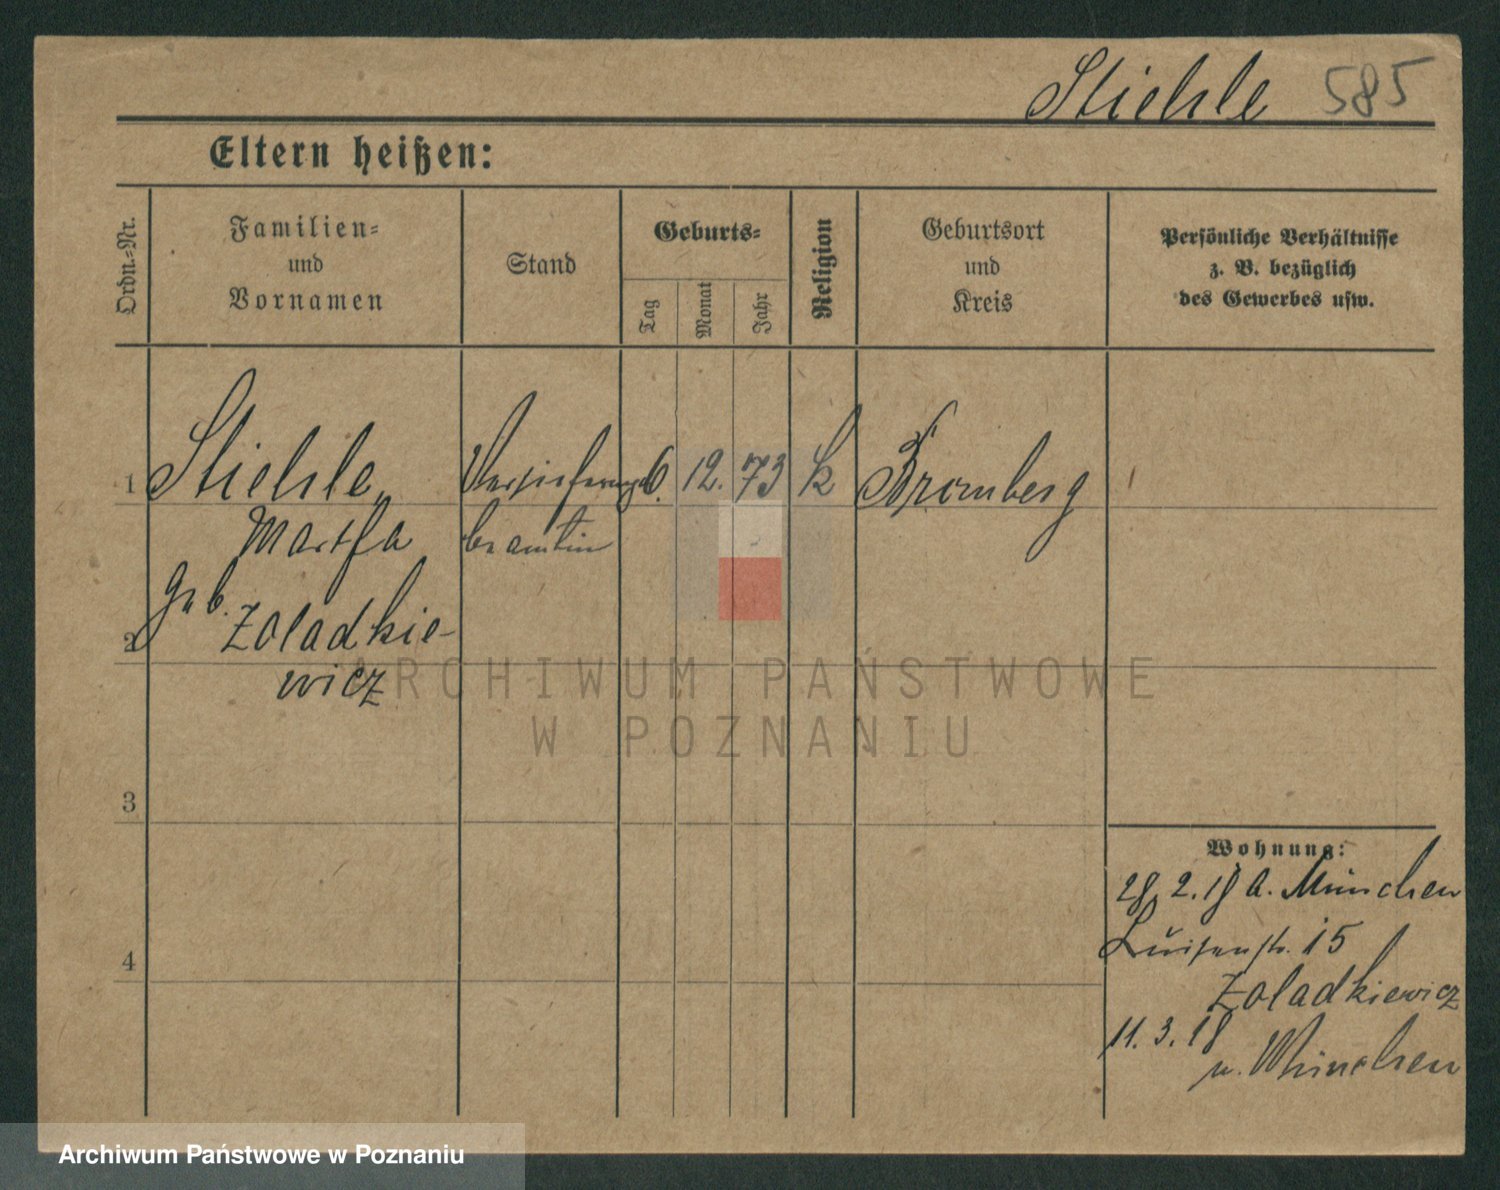 Stiehle 585
Eltern heißen:
Ordn.-Nr.
Familien-
und
Vornamen
Stand
Geburts-
Tag
Monat
Jahr
Religion
Geburtsort
und
Kreis
Persönliche Verhältnisse
z. B. bezüglich
des Gewerbes usw.
1 Stiehle, Versicherungs 6. 12. 73 k Bromberg
Martha beamtin
geb.
2 Zoladkie-
wicz
ARCHIWUM PAŃSTWOWE
W POZNANIU
3
Wohnung:
28. 2. 18 a. München
4 Luisenstr. 15
Zoladkiewicz
11. 3. 18
n. München
Archiwum Państwowe w Poznaniu